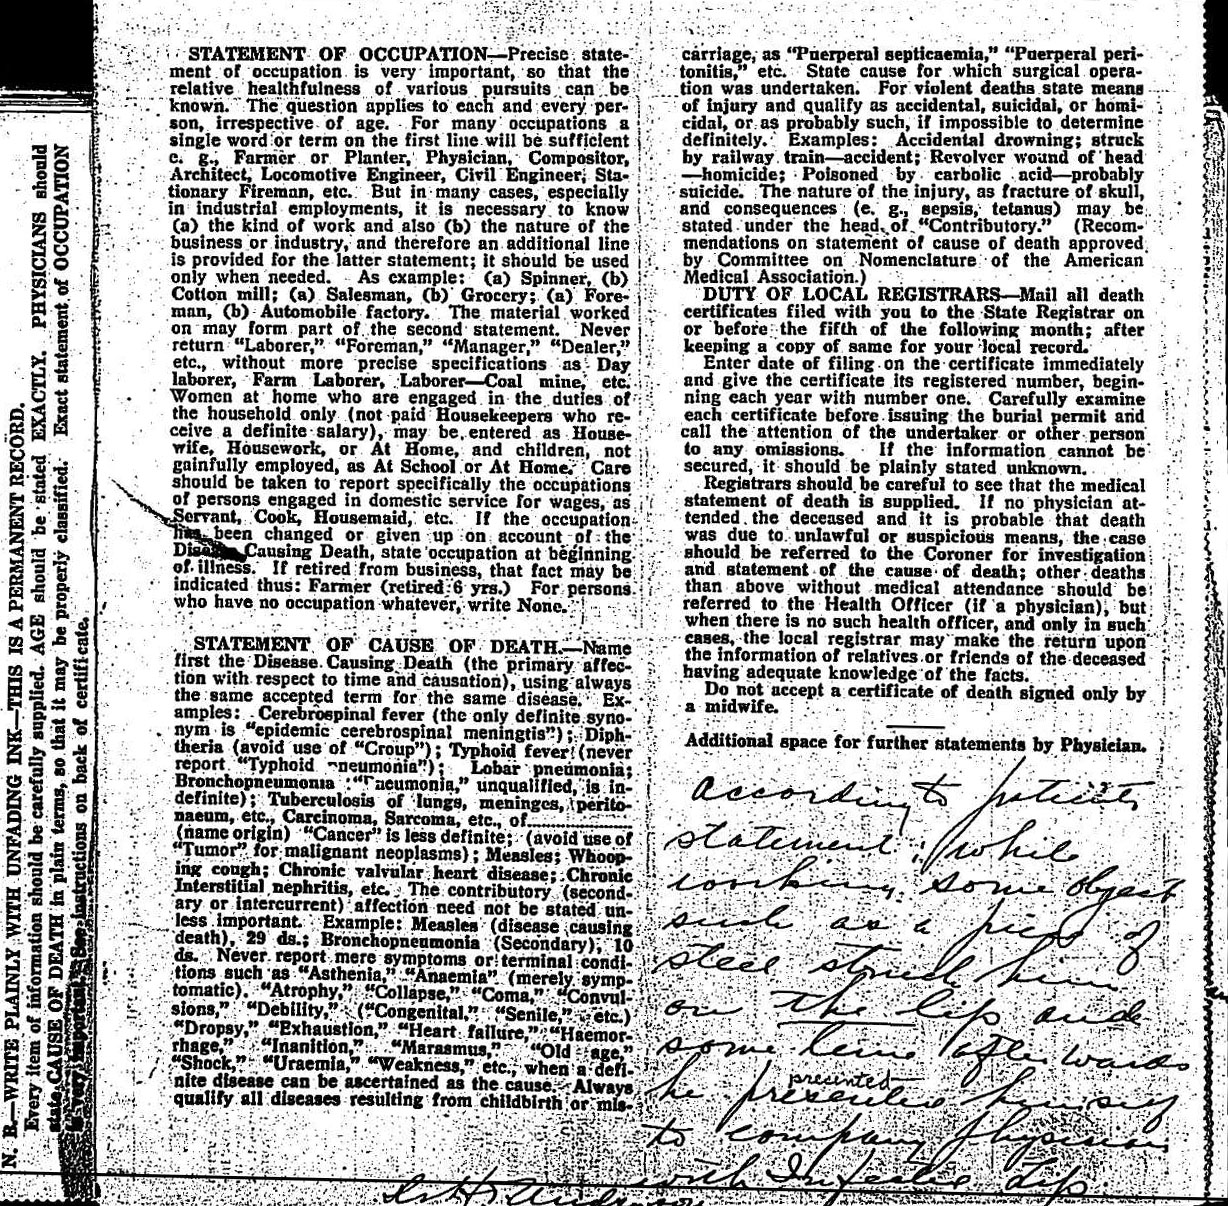 N. B.—WRITE PLAINLY WITH UNFADING INK—THIS IS A PERMANENT RECORD.
Every item of information should be carefully supplied. AGE should be stated EXACTLY. PHYSICIANS should
state CAUSE OF DEATH in plain terms, so that it may be properly classified. Exact statement of OCCUPATION
is very important. See instructions on back of certificate.
STATEMENT OF OCCUPATION—Precise state-
ment of occupation is very important, so that the
relative healthfulness of various pursuits can be
known. The question applies to each and every per-
son, irrespective of age. For many occupations a
single word or term on the first line will be sufficient
e. g., Farmer or Planter, Physician, Compositor,
Architect, Locomotive Engineer, Civil Engineer, Sta-
tionary Fireman, etc. But in many cases, especially
in industrial employments, it is necessary to know
(a) the kind of work and also (b) the nature of the
business or industry, and therefore an additional line
is provided for the latter statement; it should be used
only when needed. As example: (a) Spinner, (b)
Cotton mill; (a) Salesman, (b) Grocery; (a) Fore-
man, (b) Automobile factory. The material worked
on may form part of the second statement. Never
return "Laborer," "Foreman," "Manager," "Dealer,"
etc., without more precise specifications as Day
laborer, Farm Laborer, Laborer—Coal mine, etc.
Women at home who are engaged in the duties of
the household only (not paid Housekeepers who re-
ceive a definite salary), may be entered as House-
wife, Housework, or At Home, and children, not
gainfully employed, as At School or At Home. Care
should be taken to report specifically the occupations
of persons engaged in domestic service for wages, as
Servant, Cook, Housemaid, etc. If the occupation
has been changed or given up on account of the
Disease Causing Death, state occupation at beginning
of illness. If retired from business, that fact may be
indicated thus: Farmer (retired 6 yrs.) For persons
who have no occupation whatever, write None.
STATEMENT OF CAUSE OF DEATH.—Name
first the Disease Causing Death (the primary affec-
tion with respect to time and causation), using always
the same accepted term for the same disease. Ex-
amples: Cerebrospinal fever (the only definite syno-
nym is "epidemic cerebrospinal meningtis"); Diph-
theria (avoid use of "Croup"); Typhoid fever (never
report "Typhoid neumonia"); Lobar pneumonia;
Bronchopneumonia "neumonia," unqualified, is in-
definite); Tuberculosis of lungs, meninges, perito-
naeum, etc., Carcinoma, Sarcoma, etc., of
(name origin) "Cancer" is less definite; (avoid use of
"Tumor" for malignant neoplasms); Measles; Whoop-
ing cough; Chronic valvular heart disease; Chronic
Interstitial nephritis, etc. The contributory (second-
ary or intercurrent) affection need not be stated un-
less important. Example: Measles (disease causing
death), 29 ds.; Bronchopneumonia (Secondary), 10
ds. Never report mere symptoms or terminal condi-
tions such as "Asthenia," "Anaemia" (merely symp-
tomatic). "Atrophy," "Collapse," "Coma," "Convul-
sions," "Debility," ("Congenital," "Senile," etc.)
"Dropsy," "Exhaustion," "Heart failure," "Haemor-
rhage," "Inanition," "Marasmus," "Old age,"
"Shock," "Uraemia," "Weakness," etc., when a defi-
nite disease can be ascertained as the cause. Always
qualify all diseases resulting from childbirth or mis-
carriage, as "Puerperal septicaemia," "Puerperal peri-
tonitis," etc. State cause for which surgical opera-
tion was undertaken. For violent deaths state means
of injury and qualify as accidental, suicidal, or homi-
cidal, or as probably such, if impossible to determine
definitely. Examples: Accidental drowning; struck
by railway train—accident; Revolver wound of head
—homicide; Poisoned by carbolic acid—probably
suicide. The nature of the injury, as fracture of skull,
and consequences (e. g., sepsis, tetanus) may be
stated under the head of "Contributory." (Recom-
mendations on statement of cause of death approved
by Committee on Nomenclature of the American
Medical Association.)
DUTY OF LOCAL REGISTRARS—Mail all death
certificates filed with you to the State Registrar on
or before the fifth of the following month; after
keeping a copy of same for your local record.
Enter date of filing on the certificate immediately
and give the certificate its registered number, begin-
ning each year with number one. Carefully examine
each certificate before issuing the burial permit and
call the attention of the undertaker or other person
to any omissions. If the information cannot be
secured, it should be plainly stated unknown.
Registrars should be careful to see that the medical
statement of death is supplied. If no physician at-
tended the deceased and it is probable that death
was due to unlawful or suspicious means, the case
should be referred to the Coroner for investigation
and statement of the cause of death; other deaths
than above without medical attendance should be
referred to the Health Officer (if a physician), but
when there is no such health officer, and only in such
cases, the local registrar may make the return upon
the information of relatives or friends of the deceased
having adequate knowledge of the facts.
Do not accept a certificate of death signed only by
a midwife.
Additional space for further statements by Physician.
According to patients
statement, while
working some object
such as a piece of
steel struck him
on the lip and
some time afterwards
presented
he presented himself
to company physician
with Infective lip